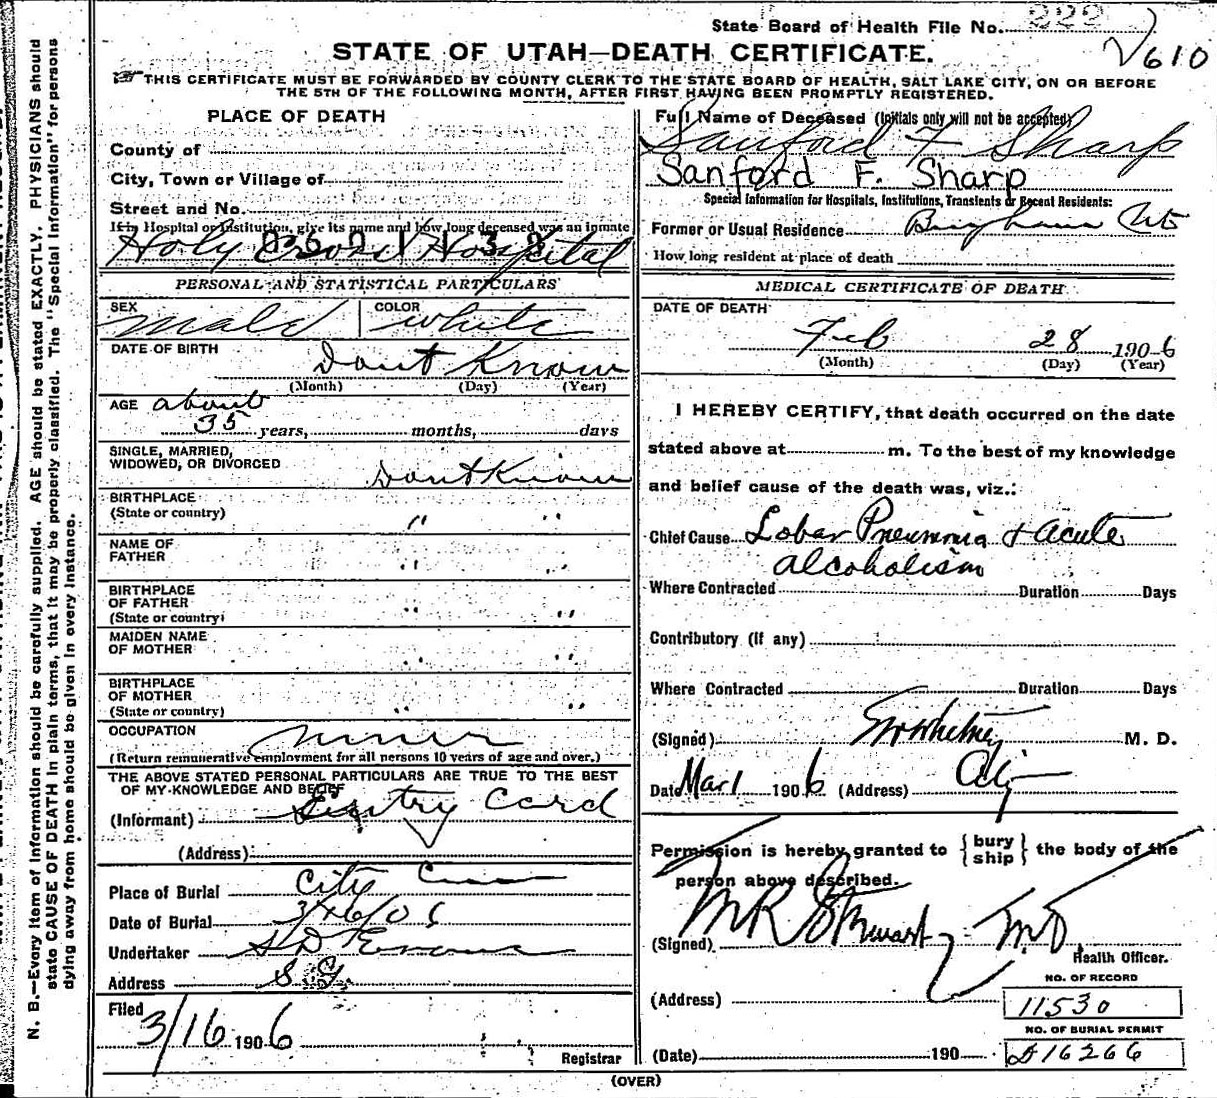 State Board of Health File No. 222
610
STATE OF UTAH—DEATH CERTIFICATE.
THIS CERTIFICATE MUST BE FORWARDED BY COUNTY CLERK TO THE STATE BOARD OF HEALTH, SALT LAKE CITY, ON OR BEFORE
THE 5TH OF THE FOLLOWING MONTH, AFTER FIRST HAVING BEEN PROMPTLY REGISTERED.
N. B.—Every item of information should be carefully supplied. AGE should be stated EXACTLY. PHYSICIANS should
state CAUSE OF DEATH in plain terms, that it may be properly classified. The "Special Information" for persons
dying away from home should be given in every instance.
PLACE OF DEATH
County of
City, Town or Village of
Street and No.
If in Hospital or Institution, give its name and how long deceased was an inmate
Holy Cross Hospital
PERSONAL AND STATISTICAL PARTICULARS
SEX male COLOR white
DATE OF BIRTH Dont Know
(Month) (Day) (Year)
AGE about
35 years, months, days
SINGLE, MARRIED,
WIDOWED, OR DIVORCED Dont Know
BIRTHPLACE
(State or country) " "
NAME OF
FATHER " "
BIRTHPLACE
OF FATHER
(State or country) " "
MAIDEN NAME
OF MOTHER " "
BIRTHPLACE
OF MOTHER
(State or country) " "
OCCUPATION miner
(Return remunerative employment for all persons 10 years of age and over.)
THE ABOVE STATED PERSONAL PARTICULARS ARE TRUE TO THE BEST
OF MY KNOWLEDGE AND BELIEF
(Informant) Entry Card
(Address)
Place of Burial City Cem
Date of Burial 3/6/06
Undertaker S D Evans
Address S
Filed
3/16 1906
Registrar
Full Name of Deceased (Initials only will not be accepted)
Sanford F Sharp
Sanford F. Sharp
Special Information for Hospitals, Institutions, Transients or Recent Residents:
Former or Usual Residence Bingham Ut
How long resident at place of death
MEDICAL CERTIFICATE OF DEATH
DATE OF DEATH
Feb 28 1906
(Month) (Day) (Year)
I HEREBY CERTIFY, that death occurred on the date
stated above at m. To the best of my knowledge
and belief cause of the death was, viz.:
Chief Cause Lobar Pneumnia + acute
alcoholism
Where Contracted Duration Days
Contributory (if any)
Where Contracted Duration Days
(Signed) Whitney M. D.
Date Mar 1 1906 (Address) City
Permission is hereby granted to {bury ship} the body of the
person above described.
(Signed) M R Stewart MD
Health Officer.
(Address)
NO. OF RECORD
11530
NO. OF BURIAL PERMIT
(Date) 190 D16266
(OVER)